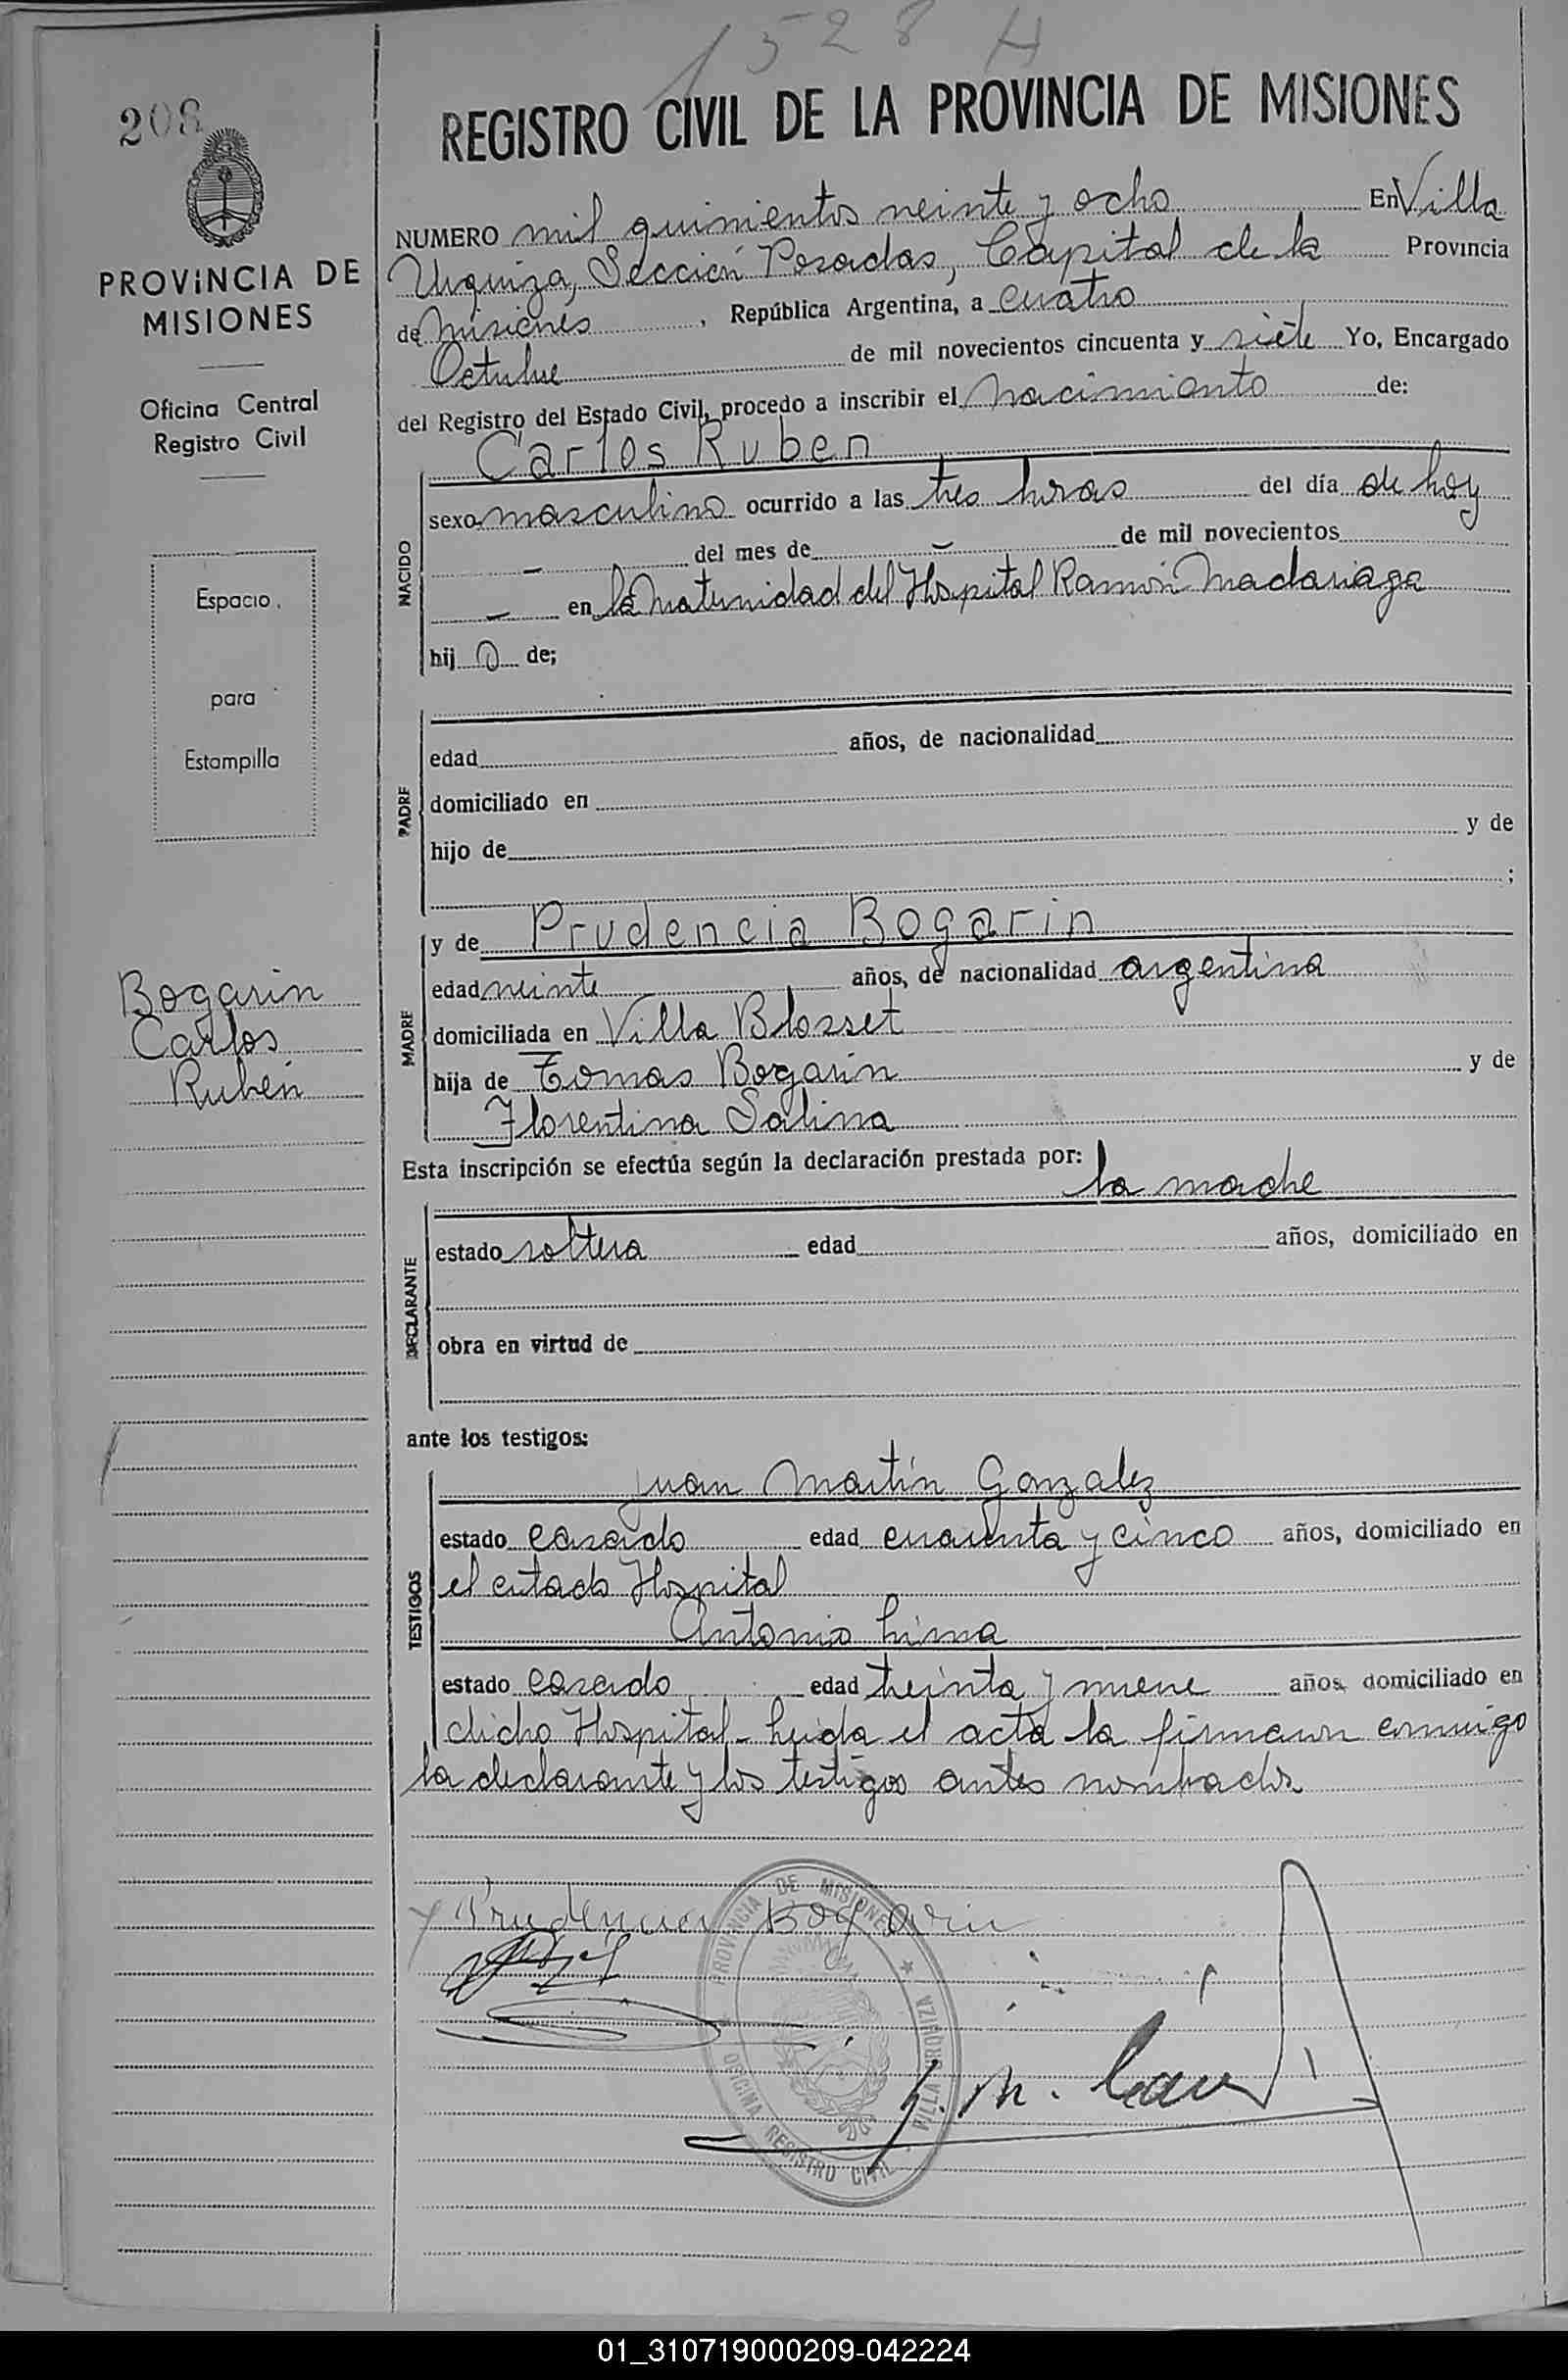 1528 H
208
REGISTRO CIVIL DE LA PROVINCIA DE MISIONES
PROVINCIA DE
MISIONES
Oficina Central
Registro Civil
Espacio
para
Estampilla
Bogarin
Carlos
Ruben
NUMERO mil quinientos veinte y ocho En Villa
Urquiza, Sección Posadas, Capital de la Provincia
de Misiones, República Argentina, a cuatro
Octubre de mil novecientos cincuenta y siete Yo, Encargado
del Registro del Estado Civil, procedo a inscribir el nacimiento de:
NACIDO
Carlos Ruben
sexo masculino ocurrido a las tres horas del día de hoy
- del mes de - de mil novecientos
- en la Maternidad del Hospital Ramón Madariaga
hij o de;
PADRE
edad años, de nacionalidad
domiciliado en
hijo de y de
;
MADRE
y de Prudencia Bogarin
edad veinte años, de nacionalidad argentina
domiciliada en Villa Blosset
hija de Tomas Bogarin y de
Florentina Salina
Esta inscripción se efectúa según la declaración prestada por: la madre
DECLARANTE
estado soltera edad años, domiciliado en
obra en virtud de
ante los testigos:
TESTIGOS
Juan Martín Gonzalez
estado casado edad cuarenta y cinco años, domiciliado en
el citado Hospital
Antonio Lima
estado casado edad treinta y nueve años, domiciliado en
dicho Hospital - Leida el acta la firmaron conmigo
la declarante y los testigos antes nombrados
Prudencia Bogarin
PROVINCIA DE MISIONES ★ VILLA URQUIZA
OFICINA REGISTRO CIVIL
J. M.
01_310719000209-042224